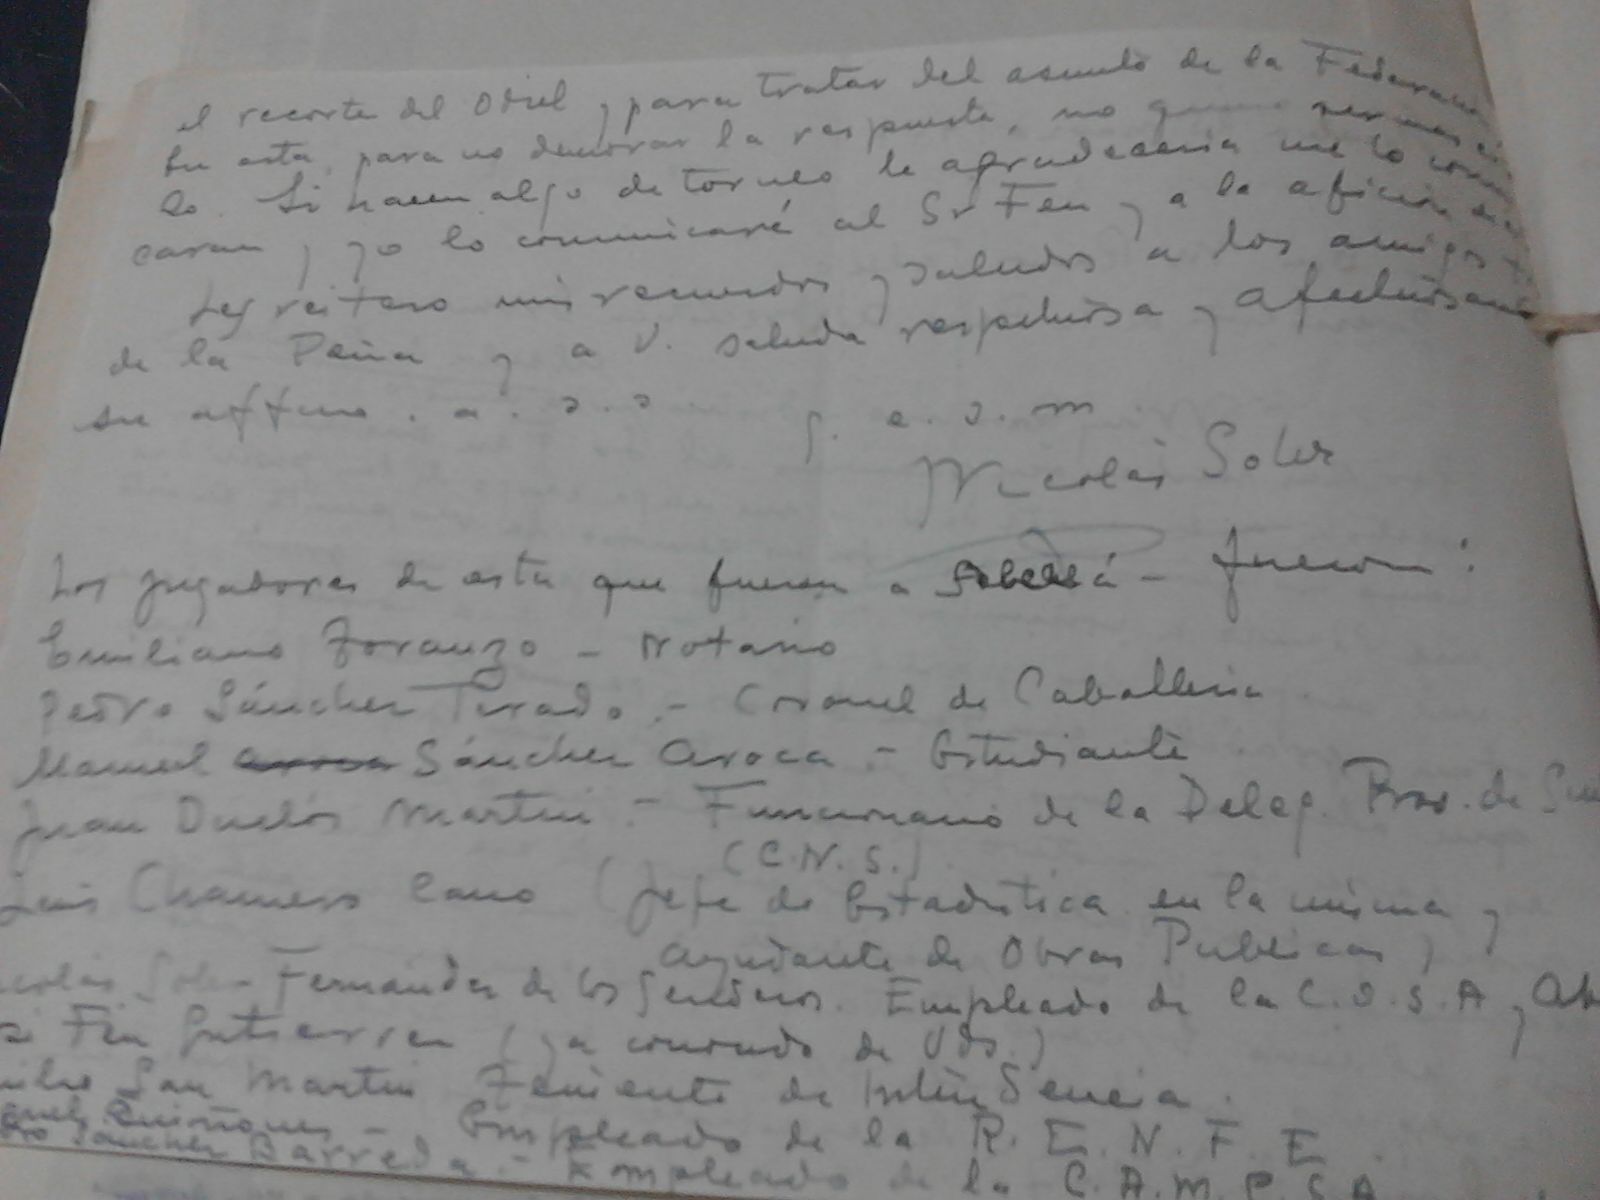 el recorte del Odiel y para tratar del asunto de la
En esta, para no demorar la respuesta, no
lo. Si hacen algo de torneo le agradecería me lo
caran y yo lo comunicaré al Sr Feu y a la afición
Les reitero mis recuerdos y saludos a los amigos
de la Peña y a V. saluda respetuosa y
su affmo. a. s. s q. e. s. m
Nicolás Soler
Los jugadores de esta que fueron a fueron:
Emiliano Foranzo - Notario
Pedro Sánchez Tirado. - Coronel de Caballería
Manuel Sánchez Aroca - Estudiante
Juan Duclós Martín - Funcionario de la Deleg. Prov. de
(C.N.S.)
Luis Chamero Cano (Jefe de Estadística en la misma y
Ayudante de Obras Públicas)
Soler Fernández de los Senderos. Empleado de la C.O.S.A y
Feu Gutierrez (ya conocido de Uds.)
San Martin Teniente de Intendencia.
Quiñones - Empleado de la R.E.N.F.E.
Sánchez Barreda. - Empleado de la C.A.M.P.S.A